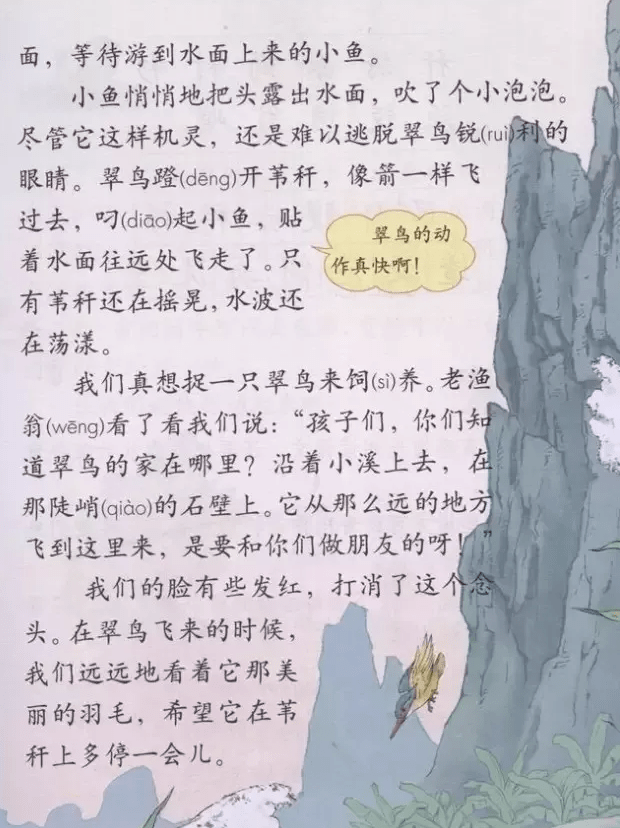 面，等待游到水面上来的小鱼。
小鱼悄悄地把头露出水面，吹了个小泡泡。
尽管它这样机灵，还是难以逃脱翠鸟锐(ruì)利的
眼睛。翠鸟蹬(dēng)开苇秆，像箭一样飞
过去，叼(diāo)起小鱼，贴
着水面往远处飞走了。只
有苇秆还在摇晃，水波还
在荡漾。
翠鸟的动
作真快啊！
我们真想捉一只翠鸟来饲(sì)养。老渔
翁(wēng)看了看我们说：“孩子们，你们知
道翠鸟的家在哪里？沿着小溪上去，在
那陡峭(qiào)的石壁上。它从那么远的地方
飞到这里来，是要和你们做朋友的呀！”
我们的脸有些发红，打消了这个念
头。在翠鸟飞来的时候，
我们远远地看着它那美
丽的羽毛，希望它在苇
秆上多停一会儿。